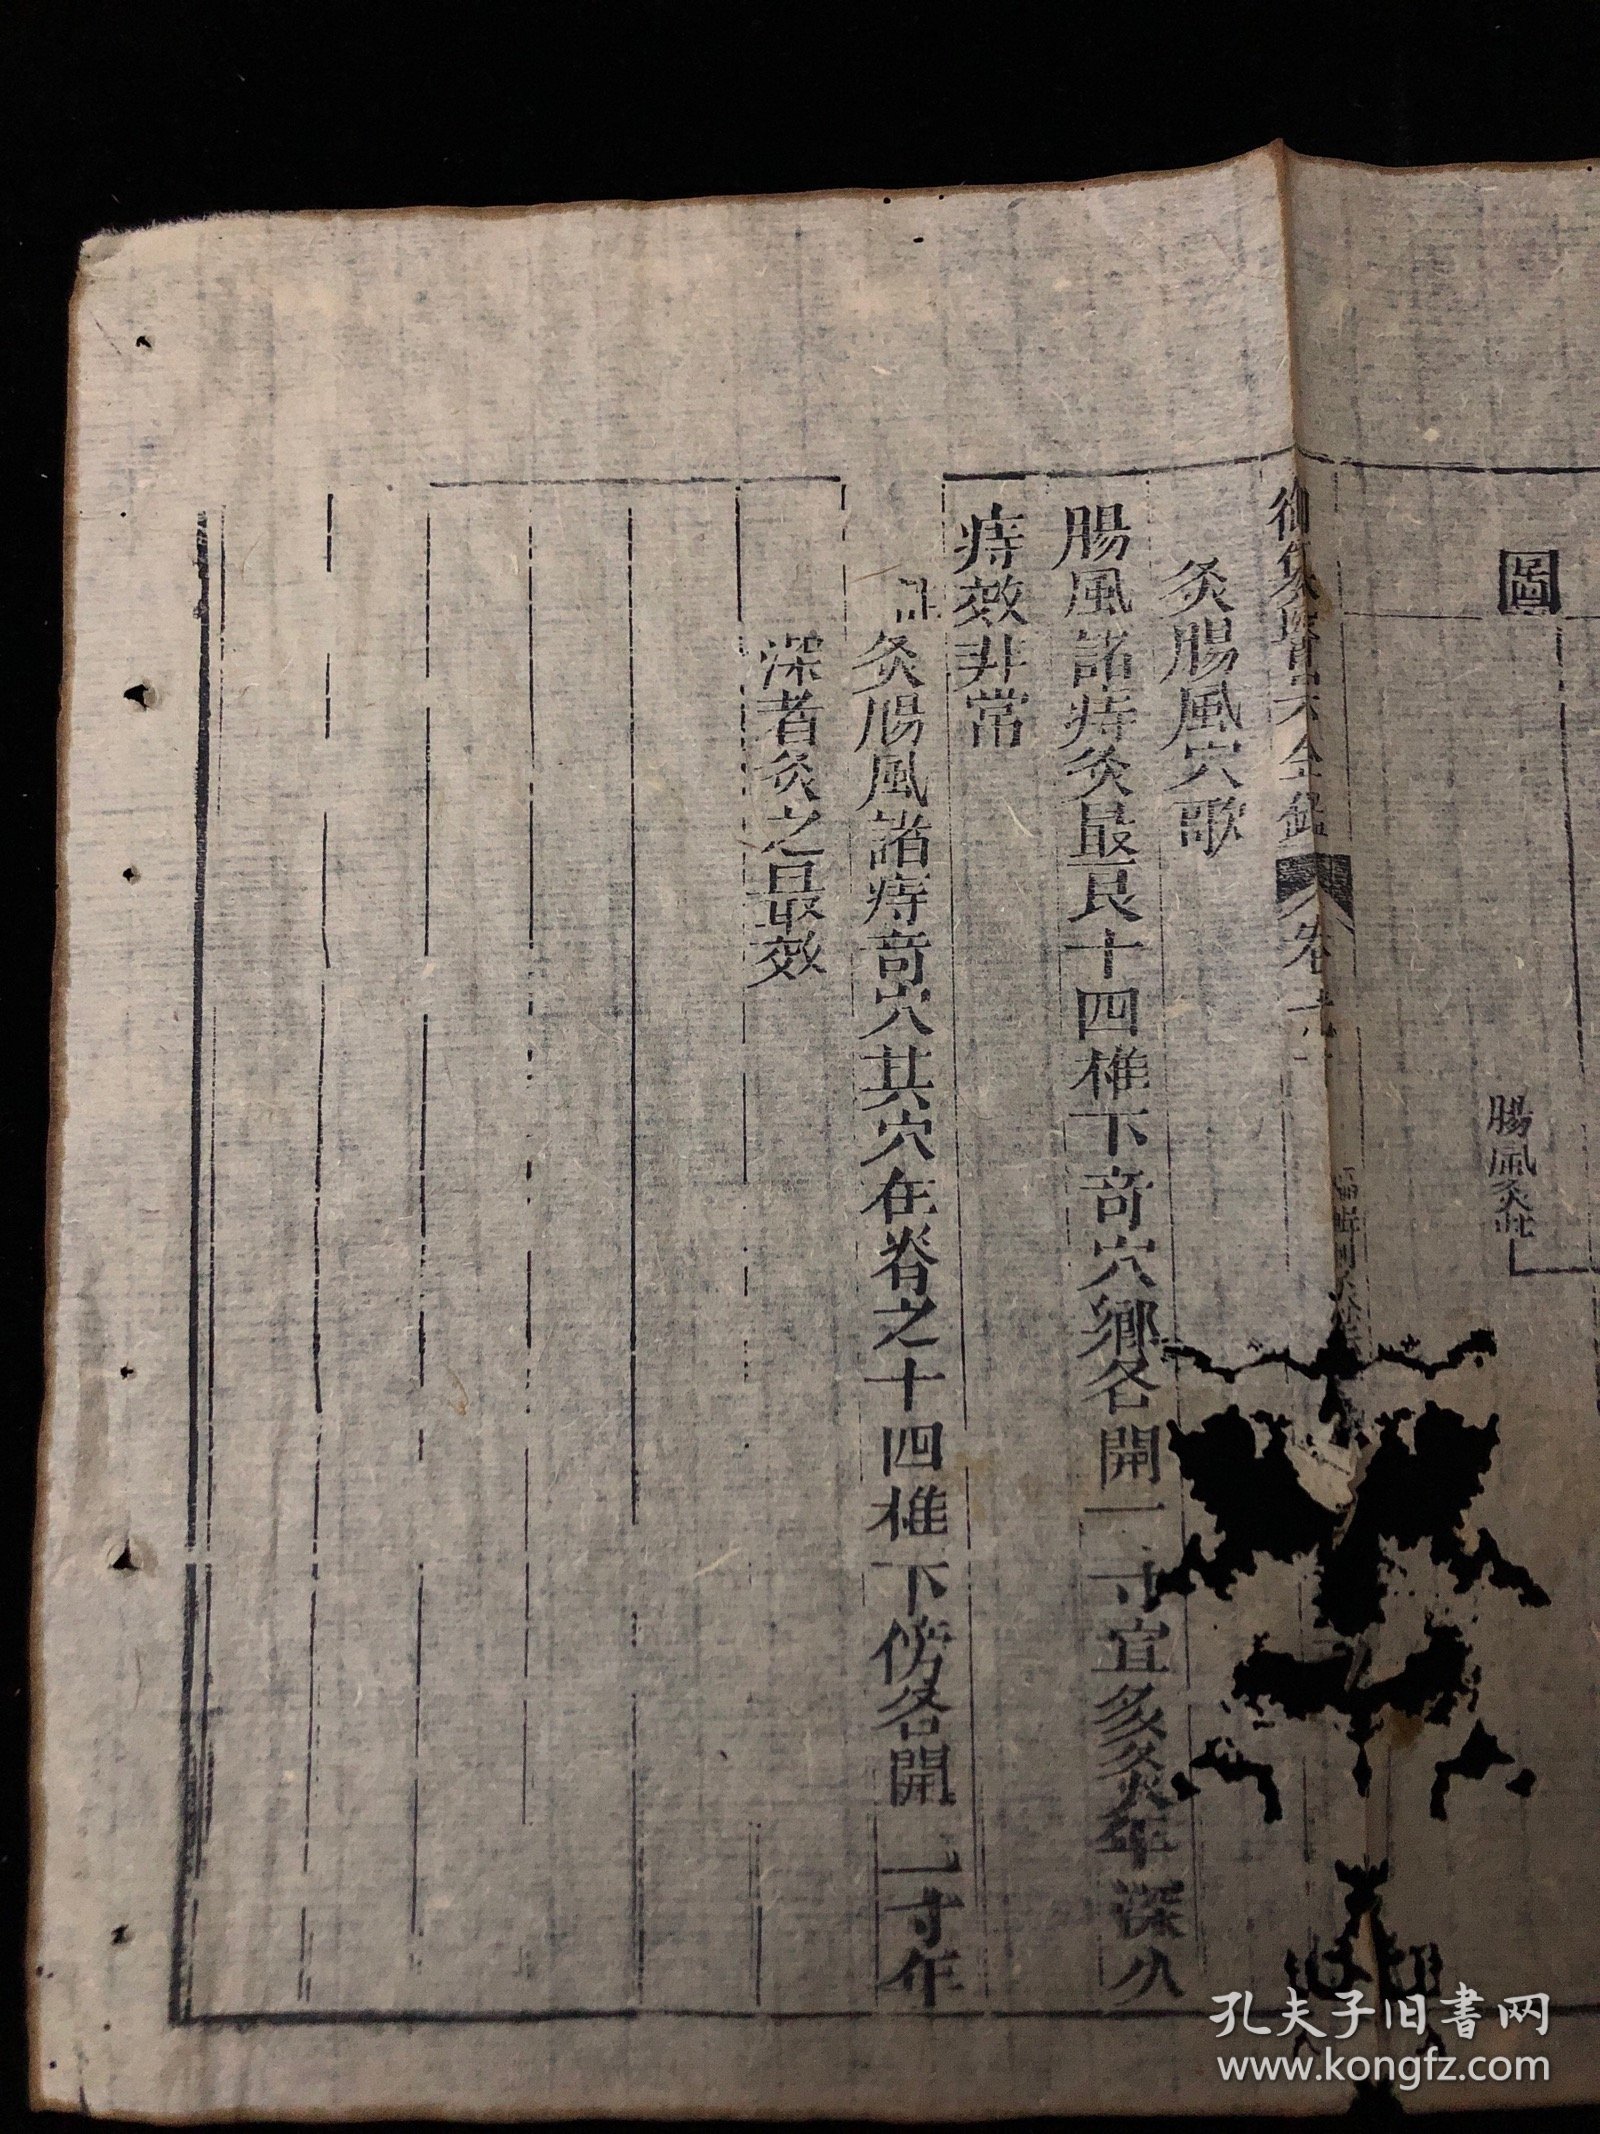 圖
腸風灸此
醫宗金鑑 卷
灸腸風穴歌
腸風諸痔灸最良十四椎下奇穴鄉各開一寸宜多灸年深久
痔效非常
註灸腸風諸痔竒穴其穴在脊之十四椎下傍各開一寸年
深者灸之最效
孔夫子旧書网
www.kongfz.com